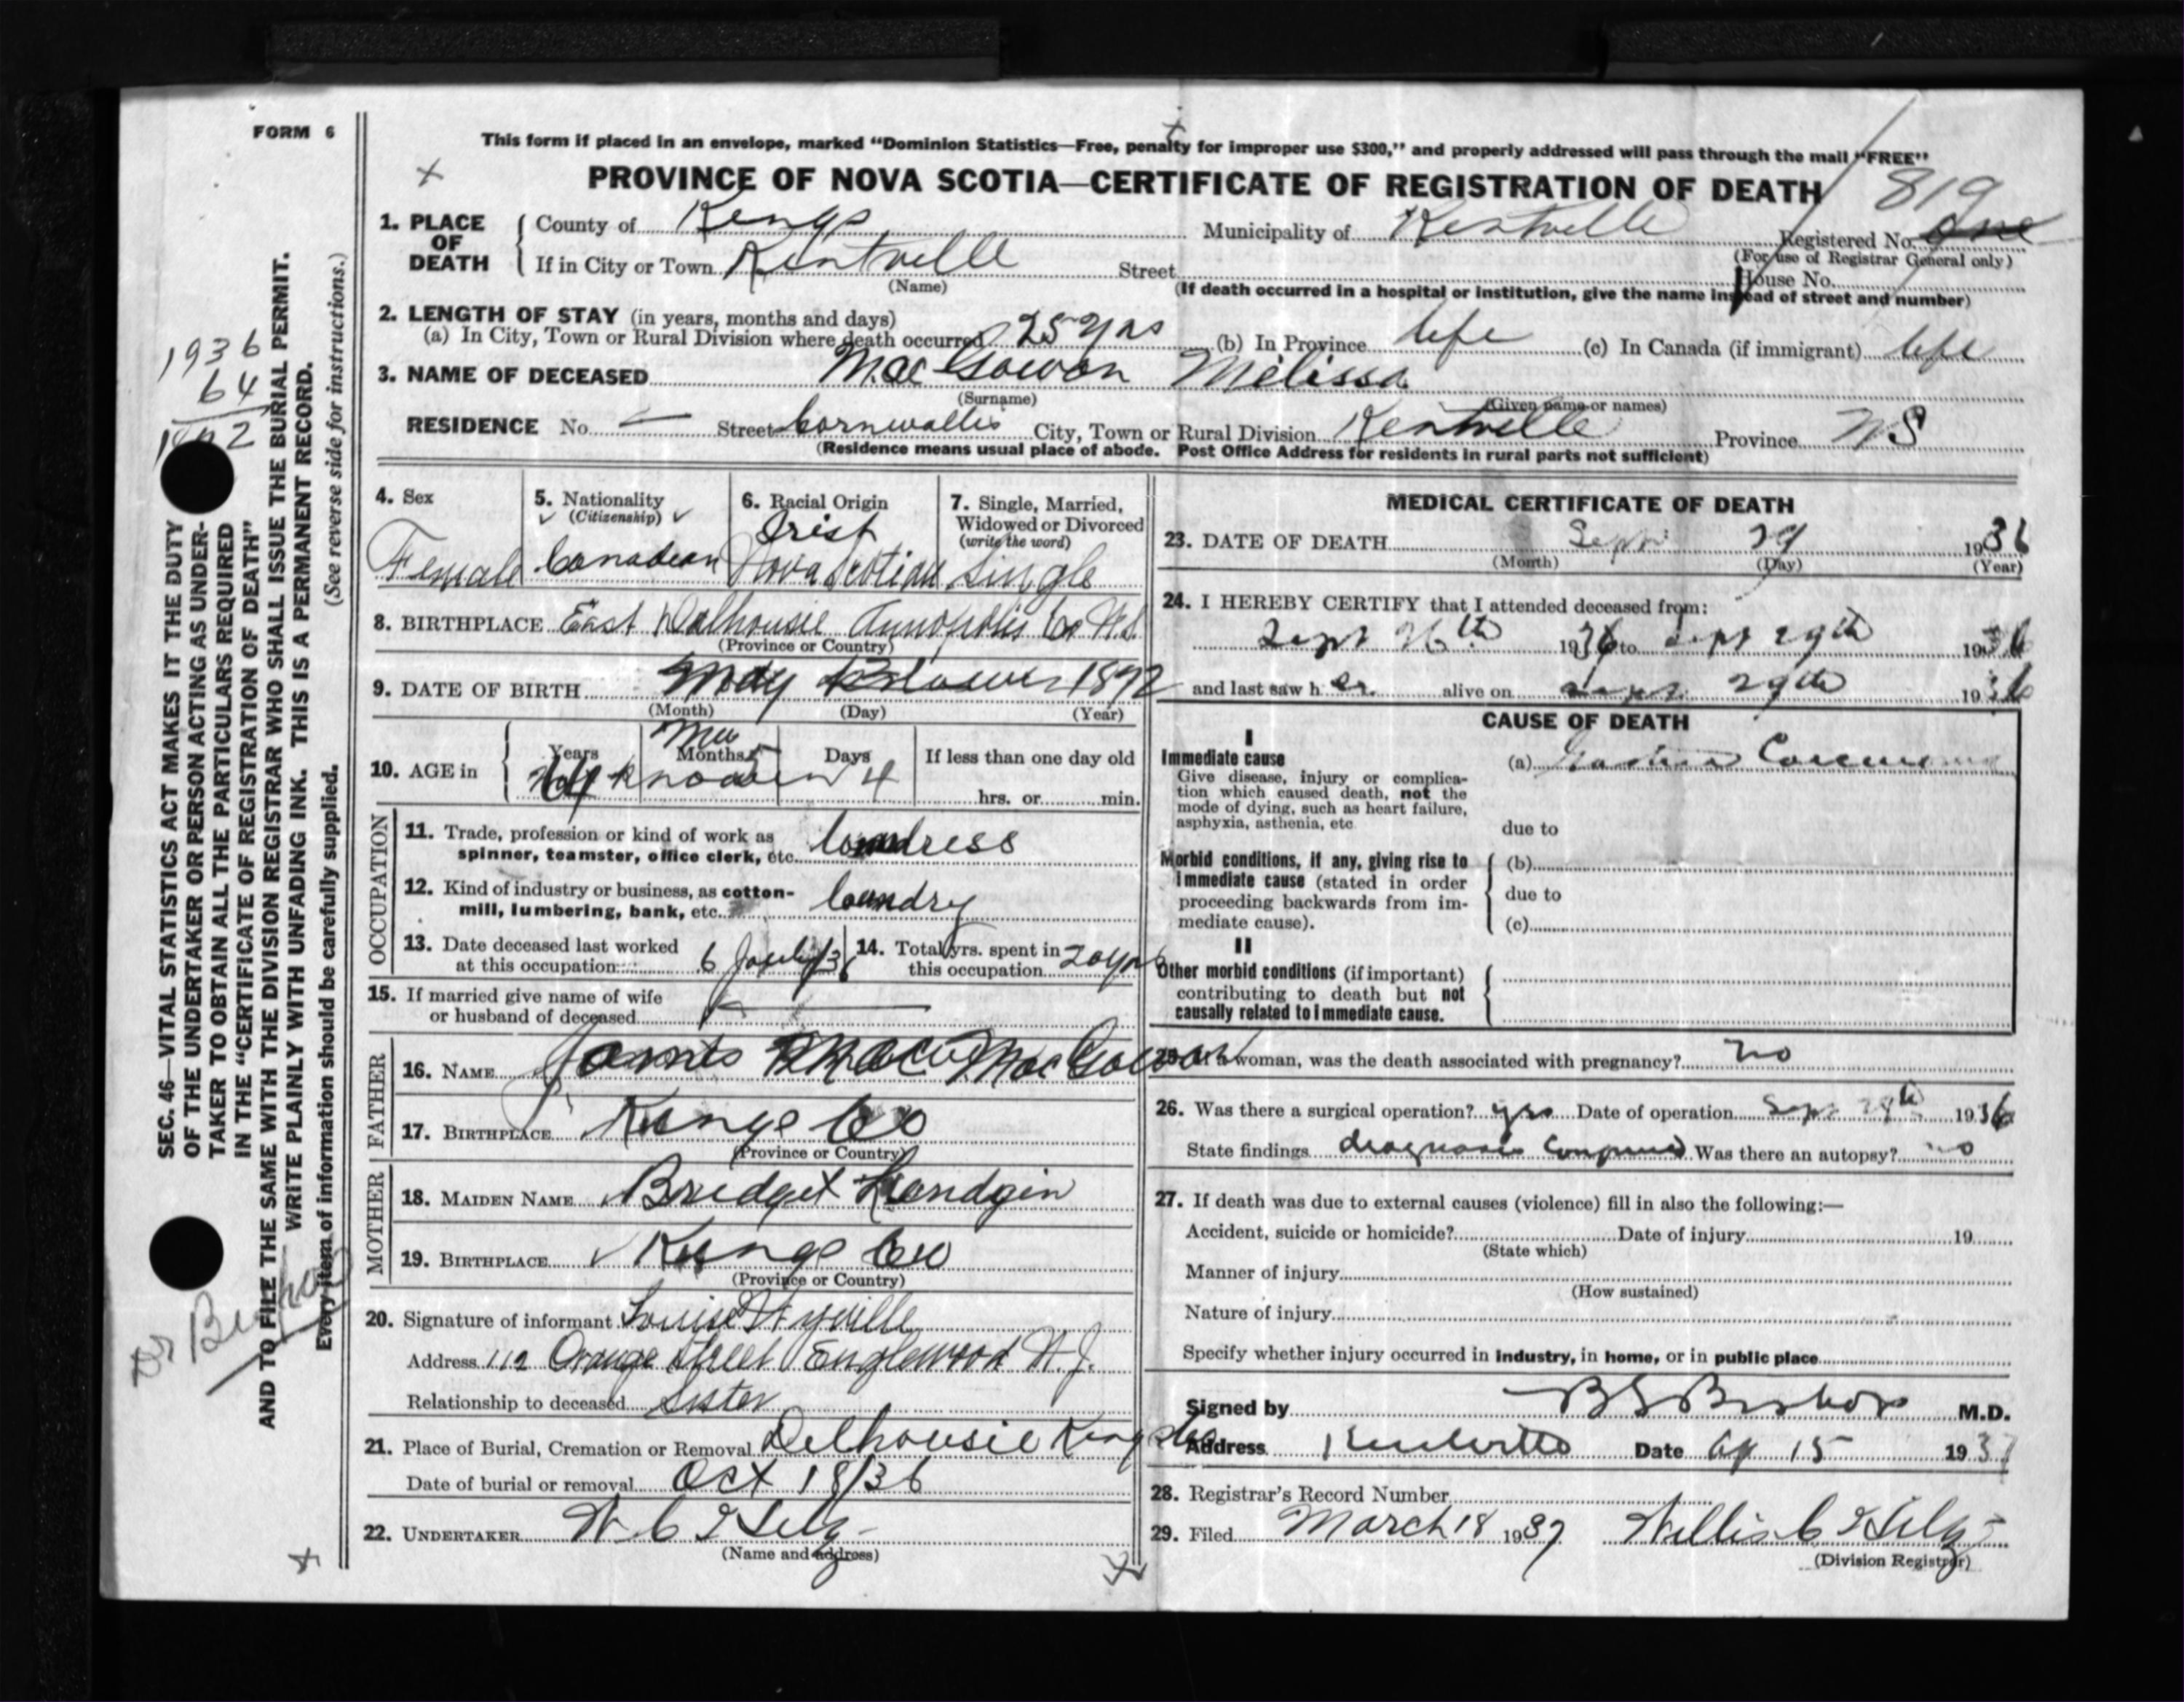 FORM 6
This form if placed in an envelope, marked "Dominion Statistics—Free, penalty for improper use $300," and properly addressed will pass through the mail "FREE"
PROVINCE OF NOVA SCOTIA—CERTIFICATE OF REGISTRATION OF DEATH
819
Registered No. one
(For use of Registrar General only)
1. PLACE OF DEATH
County of Kings Municipality of Kentville
If in City or Town Kentville Street House No.
(Name) (If death occurred in a hospital or institution, give the name instead of street and number)
2. LENGTH OF STAY (in years, months and days)
(a) In City, Town or Rural Division where death occurred 25 yrs (b) In Province life (c) In Canada (if immigrant) life
3. NAME OF DECEASED MacGowan Melissa
(Surname) (Given name or names)
RESIDENCE No. — Street Cornwallis City, Town or Rural Division Kentville Province NS
(Residence means usual place of abode. Post Office Address for residents in rural parts not sufficient)
4. Sex
Female
5. Nationality
(Citizenship)
Canadian
6. Racial Origin
Irish
Nova Scotian
7. Single, Married, Widowed or Divorced
(write the word)
Single
8. BIRTHPLACE East Dalhousie Annopolis Co N.S.
(Province or Country)
9. DATE OF BIRTH May 1872
(Month) (Day) (Year)
10. AGE in Years Months Days If less than one day old
64 4
hrs. or min.
OCCUPATION
11. Trade, profession or kind of work as spinner, teamster, office clerk, etc. laundress
12. Kind of industry or business, as cotton-mill, lumbering, bank, etc. laundry
13. Date deceased last worked at this occupation 6 July/36
14. Total yrs. spent in this occupation 20 yrs
15. If married give name of wife or husband of deceased
FATHER
16. NAME James MacGowan
17. BIRTHPLACE Kings Co
(Province or Country)
MOTHER
18. MAIDEN NAME Bridget
19. BIRTHPLACE Kings Co
(Province or Country)
20. Signature of informant Louise Wyville
Address 112 Orange Street Englewood N.J.
Relationship to deceased Sister
21. Place of Burial, Cremation or Removal Delhousie Kings Co
Date of burial or removal Oct 18/36
22. UNDERTAKER
(Name and address)
MEDICAL CERTIFICATE OF DEATH
23. DATE OF DEATH Sept 29 1936
(Month) (Day) (Year)
24. I HEREBY CERTIFY that I attended deceased from:
Sept 26th 1936 to Sept 29th 1936
and last saw her alive on Sept 29th 1936
CAUSE OF DEATH
I
Immediate cause
Give disease, injury or complication which caused death, not the mode of dying, such as heart failure, asphyxia, asthenia, etc
(a) Carcinoma
due to
Morbid conditions, if any, giving rise to immediate cause (stated in order proceeding backwards from immediate cause).
(b)
due to
(c)
II
Other morbid conditions (if important) contributing to death but not causally related to immediate cause.
25. If a woman, was the death associated with pregnancy? no
26. Was there a surgical operation? yes Date of operation Sept 28th 1936
State findings diagnosis confirmed Was there an autopsy? no
27. If death was due to external causes (violence) fill in also the following:—
Accident, suicide or homicide? Date of injury 19
(State which)
Manner of injury
(How sustained)
Nature of injury
Specify whether injury occurred in industry, in home, or in public place
Signed by B S Bishop M.D.
Address Kentville Date Ap 15 1937
28. Registrar's Record Number
29. Filed March 18 1937 Willis C
(Division Registrar)
SEC. 46—VITAL STATISTICS ACT MAKES IT THE DUTY
OF THE UNDERTAKER OR PERSON ACTING AS UNDER-
TAKER TO OBTAIN ALL THE PARTICULARS REQUIRED
IN THE "CERTIFICATE OF REGISTRATION OF DEATH"
AND TO FILE THE SAME WITH THE DIVISION REGISTRAR WHO SHALL ISSUE THE BURIAL PERMIT.
WRITE PLAINLY WITH UNFADING INK. THIS IS A PERMANENT RECORD.
Every item of information should be carefully supplied. (See reverse side for instructions.)
1936
64
1872
Dr Bishop